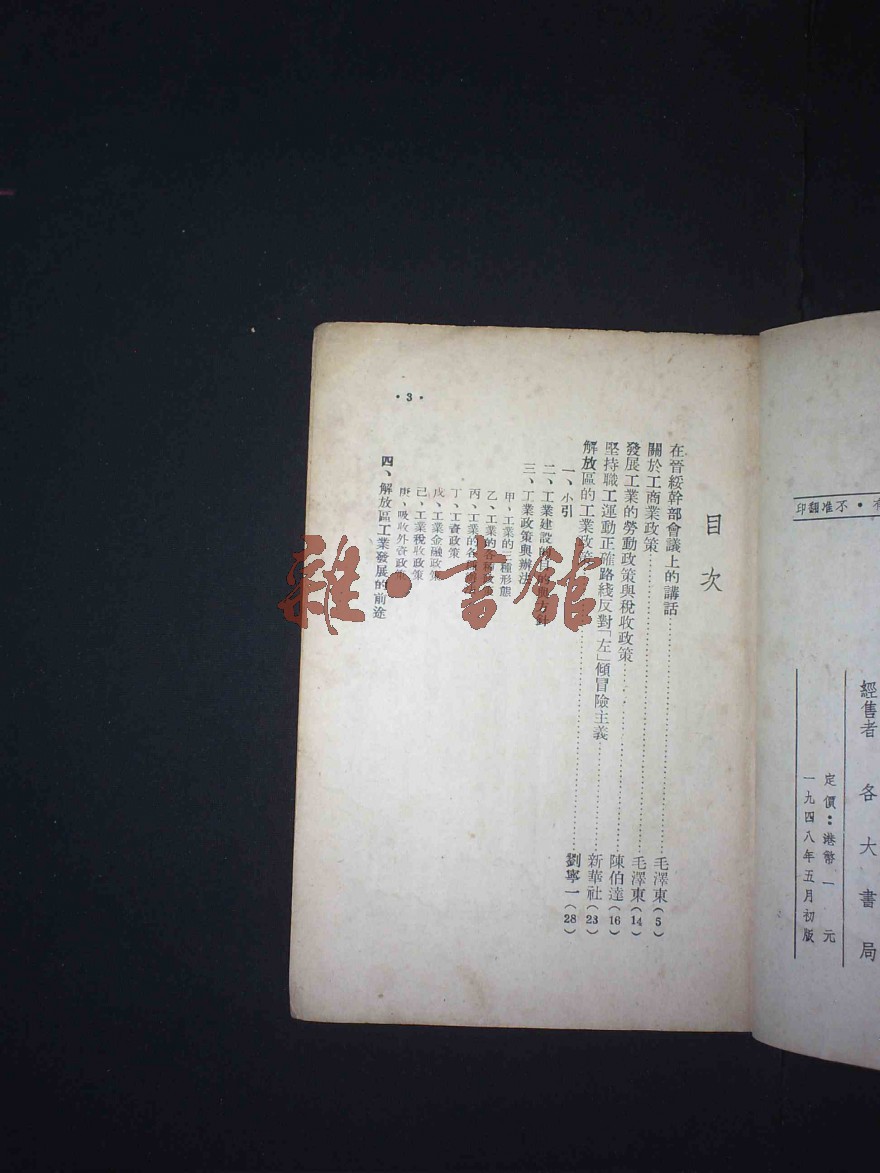 有・不准翻印
經售者 各大書局
定價：港幣一元
一九四八年五月初版
目次
在晉綏幹部會議上的講話……毛澤東（5）
關於工商業政策……毛澤東（14）
發展工業的勞動政策與稅收政策……陳伯達（16）
堅持職工運動正確路綫反對「左」傾冒險主義……新華社（23）
解放區的工業政策……劉寧一（28）
一、小引
二、工業建設的目的與方針
三、工業政策與辦法
甲、工業的三種形態
乙、工業的各種政
丙、工業的各
丁、工資政策
戊、工業金融政策
己、工業稅收政策
庚、吸收外資政策
四、解放區工業發展的前途
・3・
雜・書館